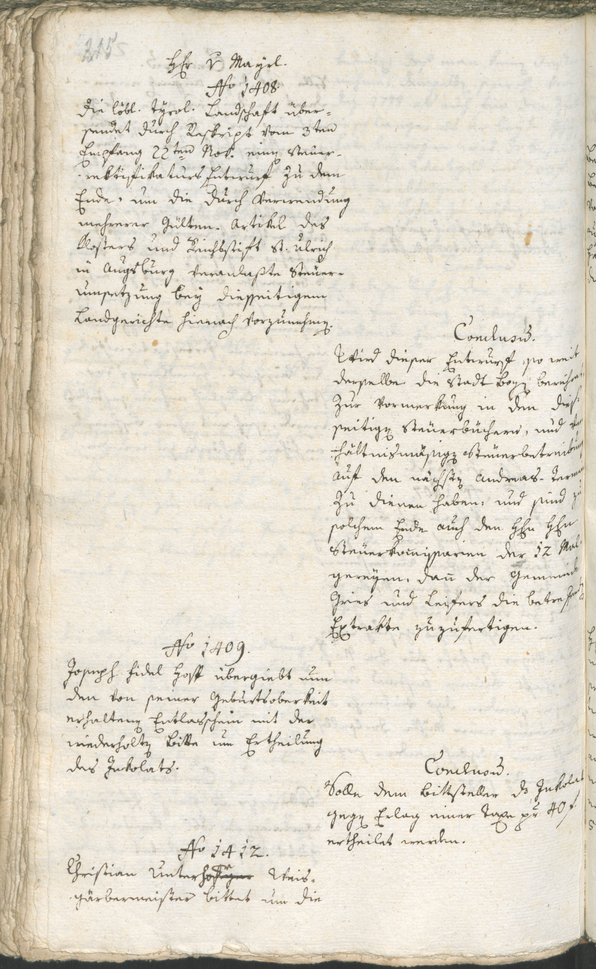 215
Hr v Mayrl.
No 1408
Die löbl. Tyrol. Landschaft über-
sendet durch Reskript vom 3ten
Empfang 22ten Nov. einen Steuer-
rektifikations Entwurf zu dem
Ende, um die durch Verwendung
mehrerer Gülten. Artikel des
Klosters und Reichsstift St. Ulrich
in Augsburg veranlaßte Steuer-
umsetzung bey diesseitigem
Landgerichte hienach vorzunehmen.
Conclusum.
Wird dieser Entwurf, so weit
derselbe die Stadt Bozen
zur Vormerkung in den dies-
seitigen Steuerbüchern, und
hältnismäßigen Steuerbetreibung
auf den nächsten Andreas-
zu dienen haben, und sind
solchem Ende auch den Hhn Hhn
Steuerkompparien der 12 Mal
gereyen, dann der Gemeinde
Gries und Leifers die
Extrakte zuzufertigen.
No 1409.
Joseph Fidel Host übergiebt nun
den von seiner Geburtsoberkeit
erhaltenen Entlasschein mit der
wiederholten Bitte um Ertheilung
des Inkolats.
Conclusum.
Solle dem Bittsteller das Inkolat
gegen Erlag einer Taxe pr 40 f
ertheilet werden.
No 1412.
Christian Weis-
gärbermeister bittet um die